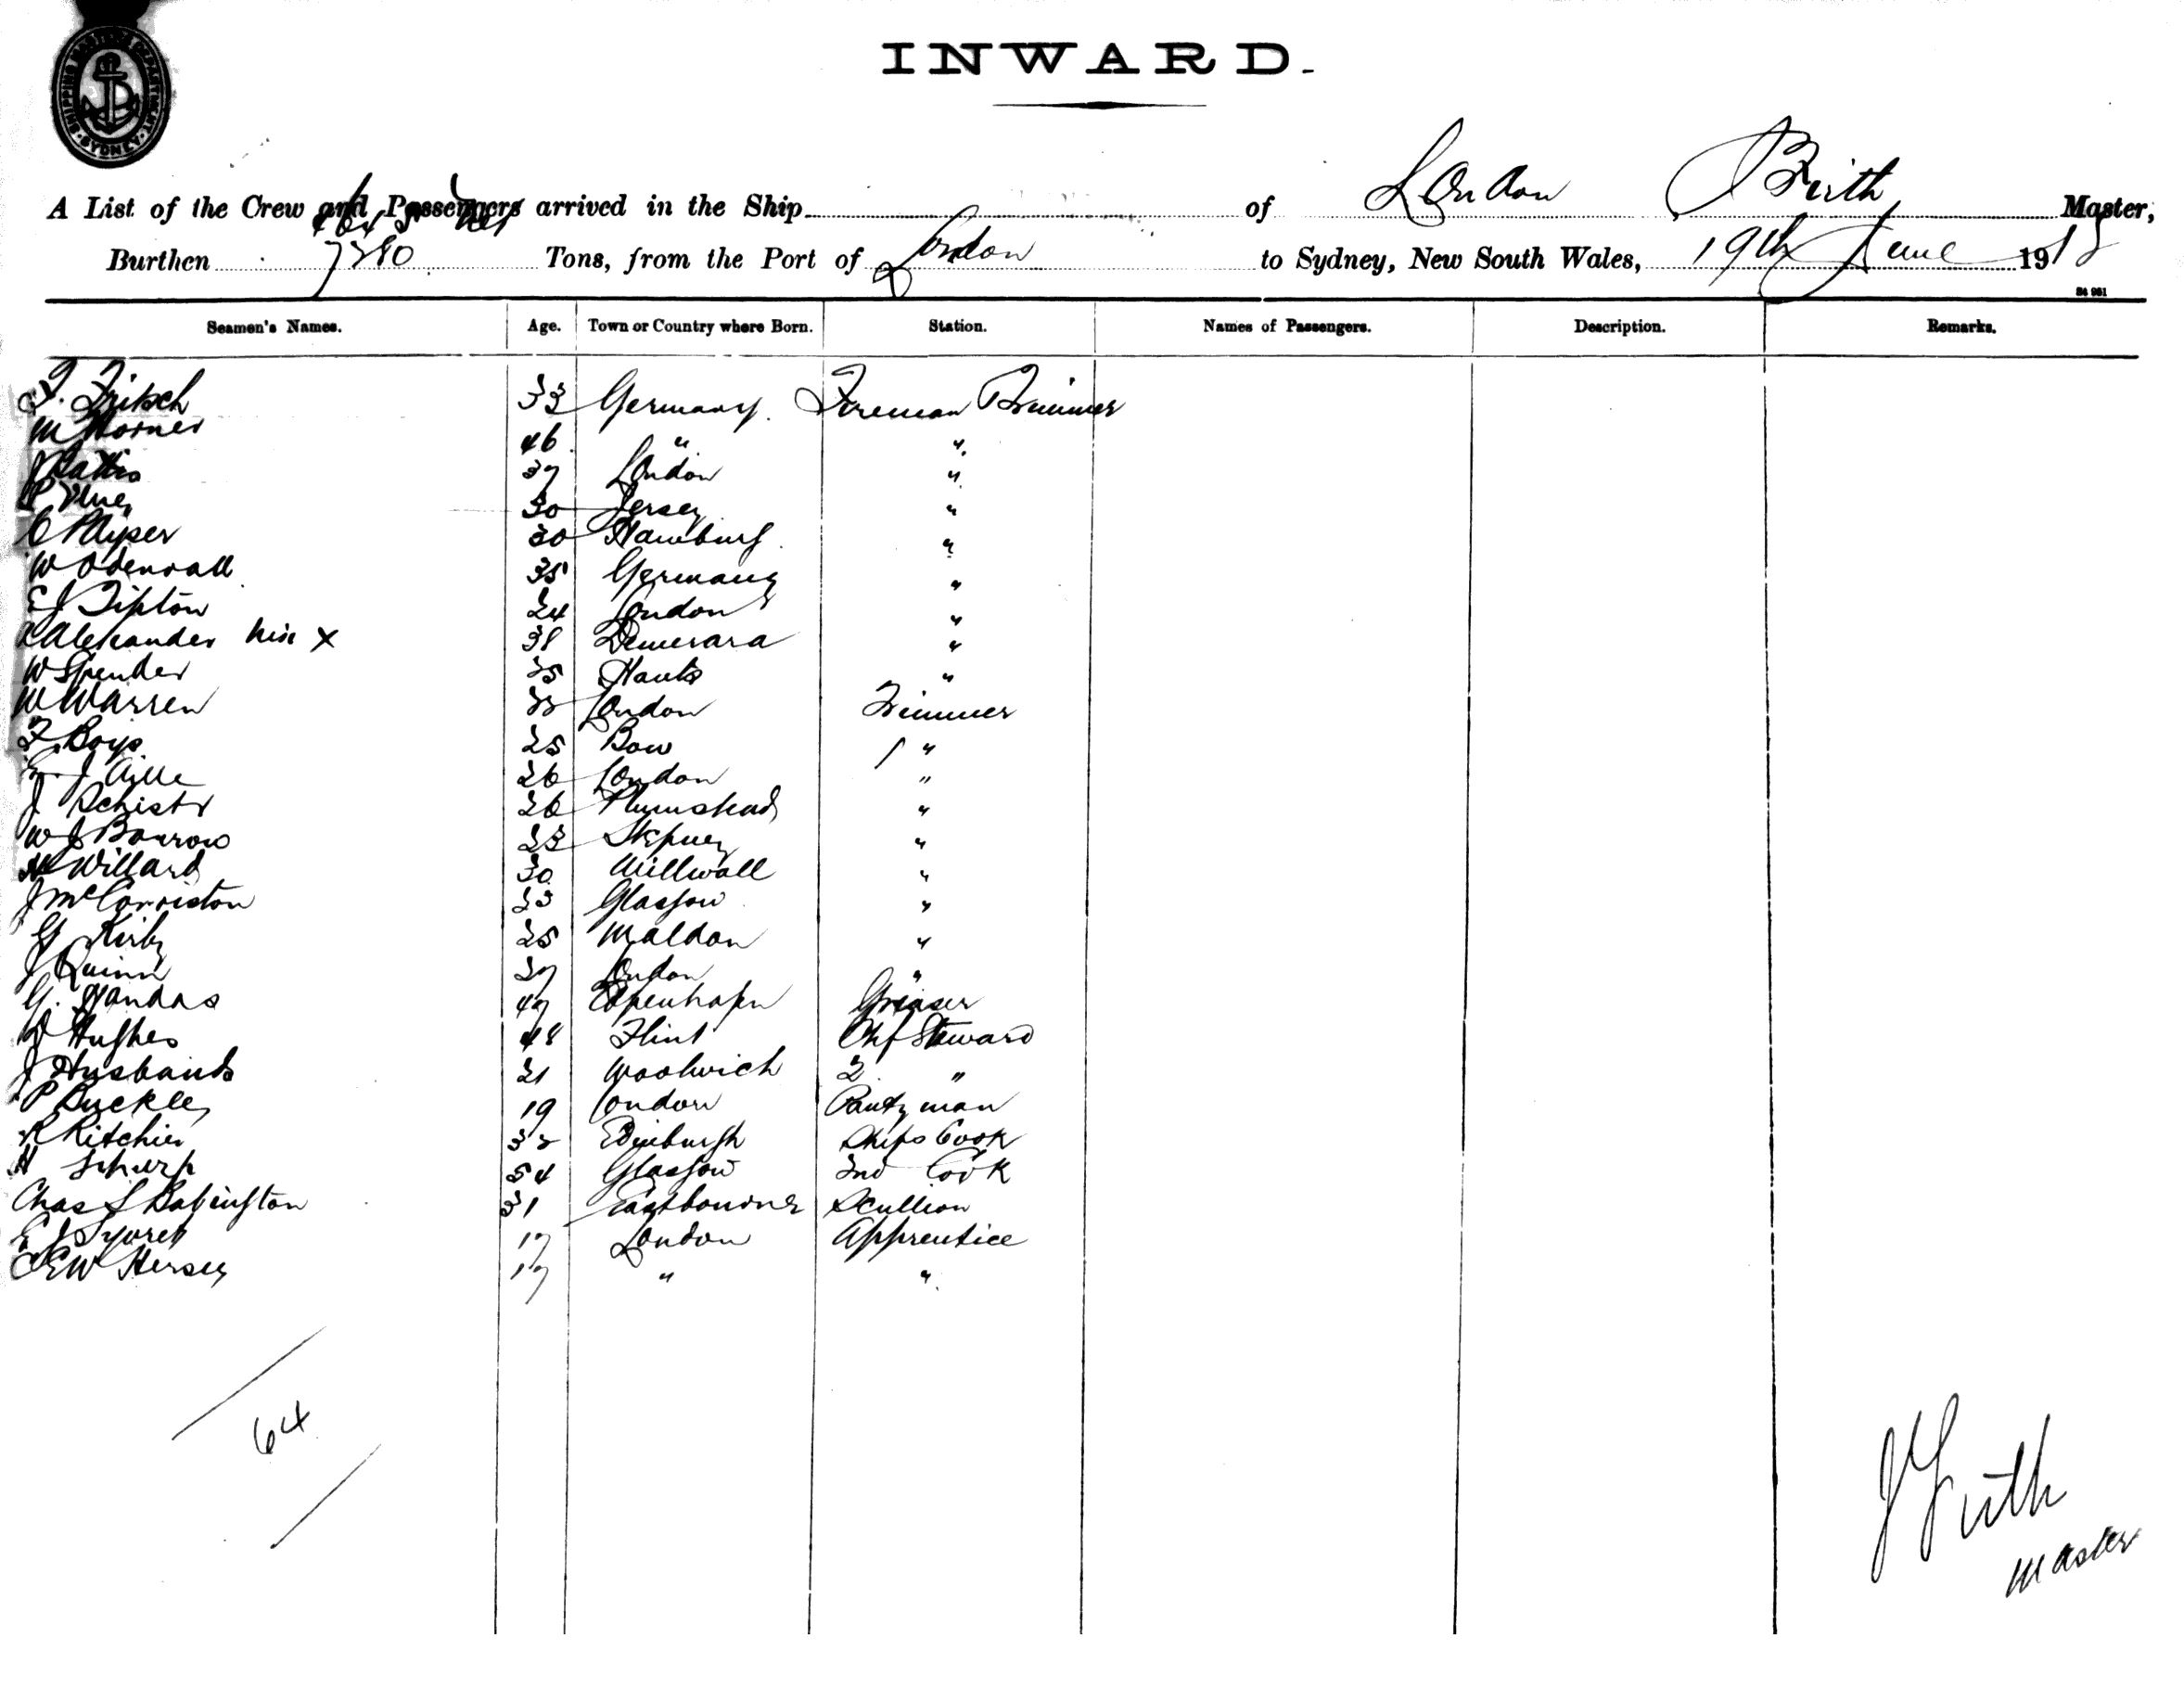 SHIPPING MASTER'S DEPARTMENT SYDNEY
INWARD.
A List of the Crew and Passengers arrived in the Ship of London Master,
Burthen Tons, from the Port of London to Sydney, New South Wales, 19th June 191
Seamen's Names. Age. Town or Country where Born. Station. Names of Passengers. Description. Remarks.
33 Germany. Fireman Trimmer
46 " "
37 London "
30 Jersey "
30 Hamburg "
35 Germany "
E J Tipton 24 London "
Alexander his X 38 Demerara "
W Spender 35 Hants "
W Warren London Trimmer
F. Boys 25 Bow "
26 London "
J 26 Plumstead "
W J Barrow 23 Stepney "
Willard 30 Millwall "
J McCorriston 33 Glasgow "
G Kirby 25 Maldon "
J Quinn 37 London "
G. 47 Copenhagen Greaser
Hughes 48 Flint Chf Steward
J Husbands 21 Woolwich 2 "
P Buckley 19 London Pantryman
R Ritchie Edinburgh Ships Cook
H 54 Glasgow 2nd Cook
Chas S Babington 31 Eastbourne Scullion
E J 17 London Apprentice
C E W Hersey 17 " "
64
J Firth
Master